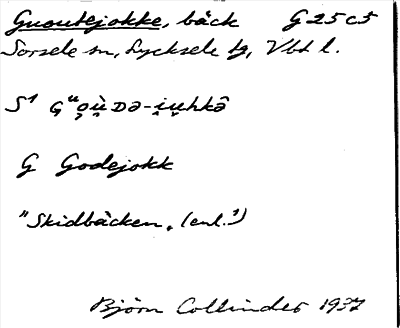 Guoutejokke, bäck G25c5
Sorsele sn, Lycksele tg, Vbt l.
S¹
G Godejokk
"Skidbäcken" (enl.¹)
Björn Collinder 1937